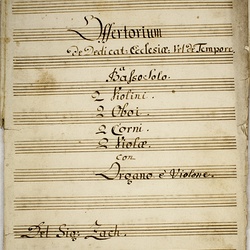 Offertorium
De Dedicat: Ecclesiæ. Vel de Tempore.
a
Basso Solo.
2 Violini.
2 Oboi.
2 Corni.
2 Violæ.
con
Organo è Violone.
Del Sig: Zach.